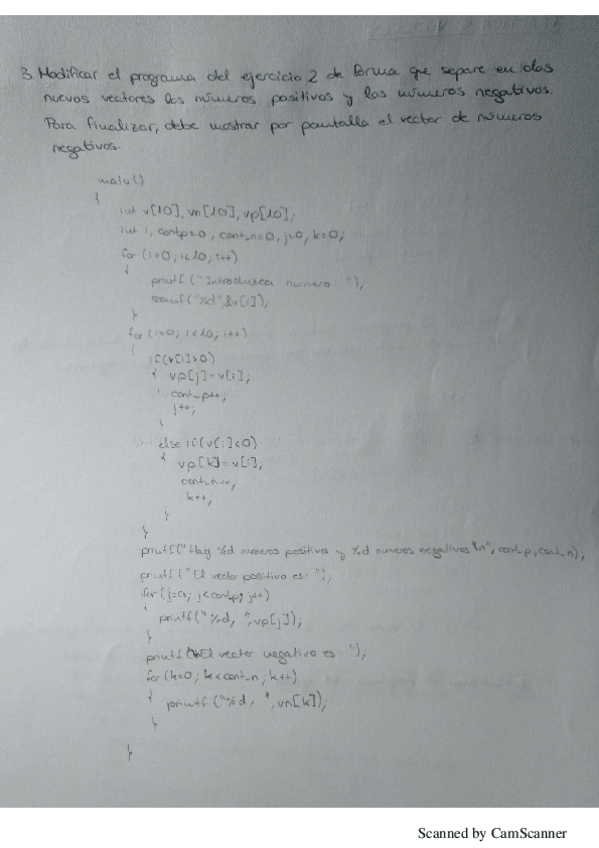 3. Modificar el programa del ejercicio 2 de forma que separe en dos
nuevos vectores los números positivos y los números negativos.
Para finalizar, debe mostrar por pantalla el vector de números
negativos.
main()
{
int v[10], vn[10], vp[10];
int i, cont_p=0, cont_n=0, j=0, k=0;
for (i=0; i<10; i++)
{
printf ("Introduzca numero: ");
scanf("%d",&v[i]);
}
for (i=0; i<10; i++)
{
if(v[i]>0)
{ vp[j]=v[i];
cont_p++;
j++;
}
else if(v[i]<0)
{ vp[k]=v[i];
cont_n++;
k++;
}
}
printf("Hay %d numeros positivos y %d numeros negativos \n", cont_p, cont_n);
printf ("El vector positivo es: ");
for (j=0; j<cont_p; j++)
{
printf("%d, ",vp[j]);
}
printf ("\nEl vector negativo es: ");
for (k=0; k<cont_n; k++)
{ printf ("%d, ",vn[k]);
}
}
Scanned by CamScanner